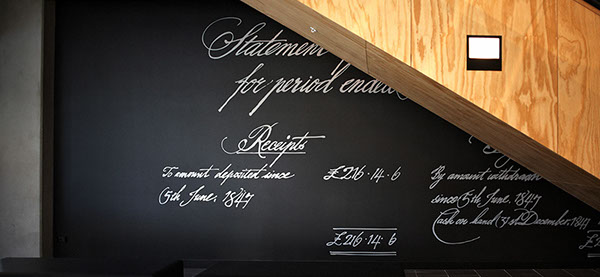 Statement
for period ended
Receipts
To amount deposited since £216·14·6
(5th June, 1847
£216·14·6
By amount withdrawn
since (5th June, 1847
Cash on hand (31st December, 1847
£2